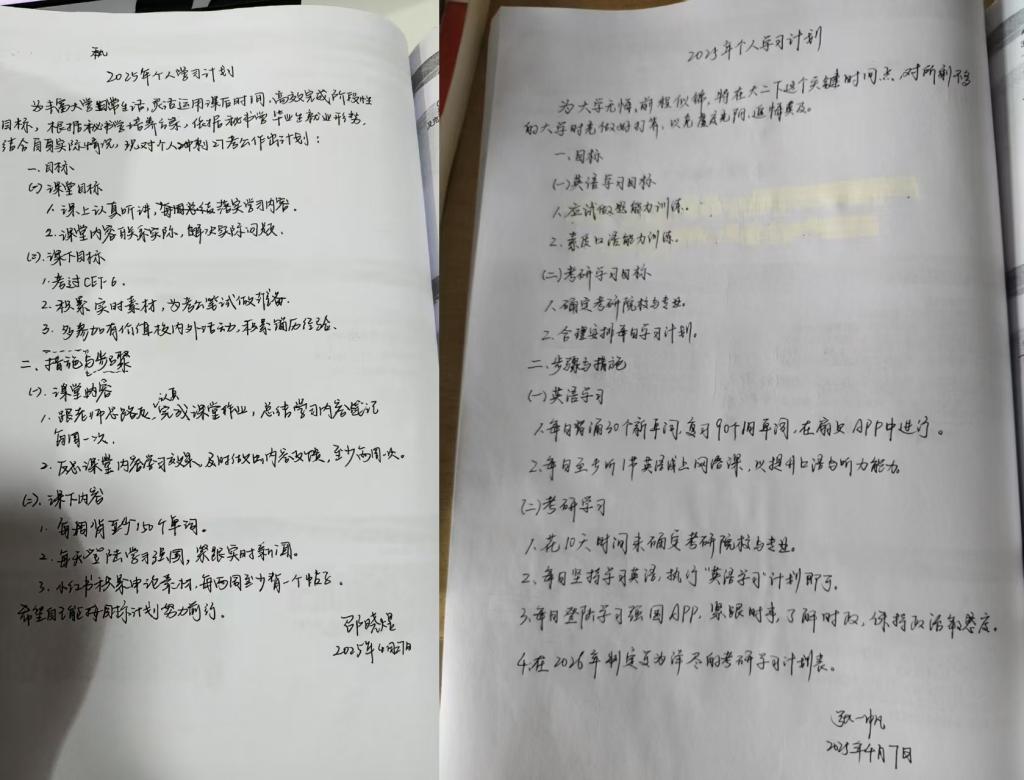 2025年个人学习计划
为丰富大学日常生活，灵活运用课后时间，高效完成阶段性
目标，根据秘书学培养方案，依据秘书学毕业生就业形势，
结合自身实际情况，现对个人冲刺27考公作出计划：
一、目标
(一) 课堂目标
1. 课上认真听讲，每周总结落实学习内容。
2. 课堂内容联系实际，解决实际问题。
(二). 课下目标
1. 考过CET-6.
2. 积累实时素材，为考公笔试做准备.
3. 多参加有价值校内外活动，积累简历经验.
二、措施与步骤
(一). 课堂内容
1. 跟老师思路走，认真完成课堂作业，总结学习内容笔记
每周一次.
2. 反思课堂内容学习效果，及时做出内容反馈，至少两周一次。
(二). 课下内容
1. 每周背至少150个单词。
2. 每天登陆学习强国，紧跟实时新闻。
3. 小红书积累申论素材，每两周至少有一个帖子。
希望自己能按目标计划努力前行。
邵晓煜
2025年4月7日
2025年个人学习计划
为大学无悔，前程似锦，将在大二下这个关键时间点，对所剩不多
的大学时光做好打算，以免虚度光阴，追悔莫及。
一、目标
(一)英语学习目标
1. 应试做题能力训练。
2. 素质口语能力训练。
(二)考研学习目标
1. 确定考研院校与专业。
2. 合理安排每日学习计划。
二、步骤与措施
(一)英语学习
1. 每日背诵30个新单词，复习90个旧单词，在扇贝APP中进行。
2. 每日至少听1节英语线上网络课，以提升口语与听力能力。
(二)考研学习
1. 花10天时间来确定考研院校与专业。
2、每日坚持学习英语，执行“英语学习”计划即可。
3. 每日登陆学习强国APP，紧跟时事，了解时政，保持政治敏感度。
4. 在2026年制定更为详尽的考研学习计划表。
一帆
2025年4月7日